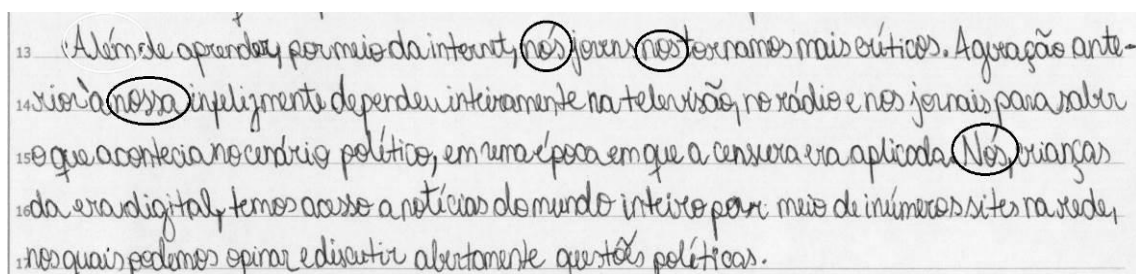 13 Além de aprender, por meio da internet, nós jovens nos tornamos mais críticos. A geração ante-
14 rior à nossa infelizmente dependeu inteiramente na televisão, no rádio e nos jornais para saber
15 o que acontecia no cenário político, em uma época em que a censura era aplicada. Nós, crianças
16 da era digital, temos acesso a notícias do mundo inteiro por meio de inúmeros sites na rede,
17 nos quais podemos opinar e discutir abertamente questões políticas.